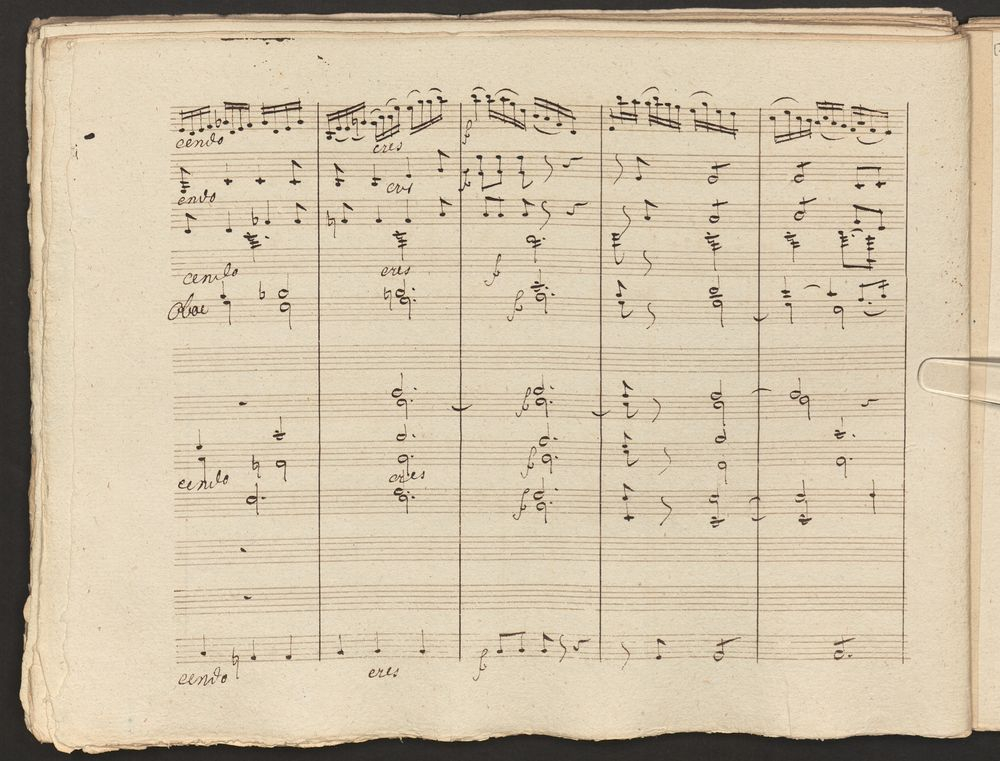 cendo cres f
endo cres f
cendo cres f
Oboe f
f
cendo f cres
f
cendo cres f